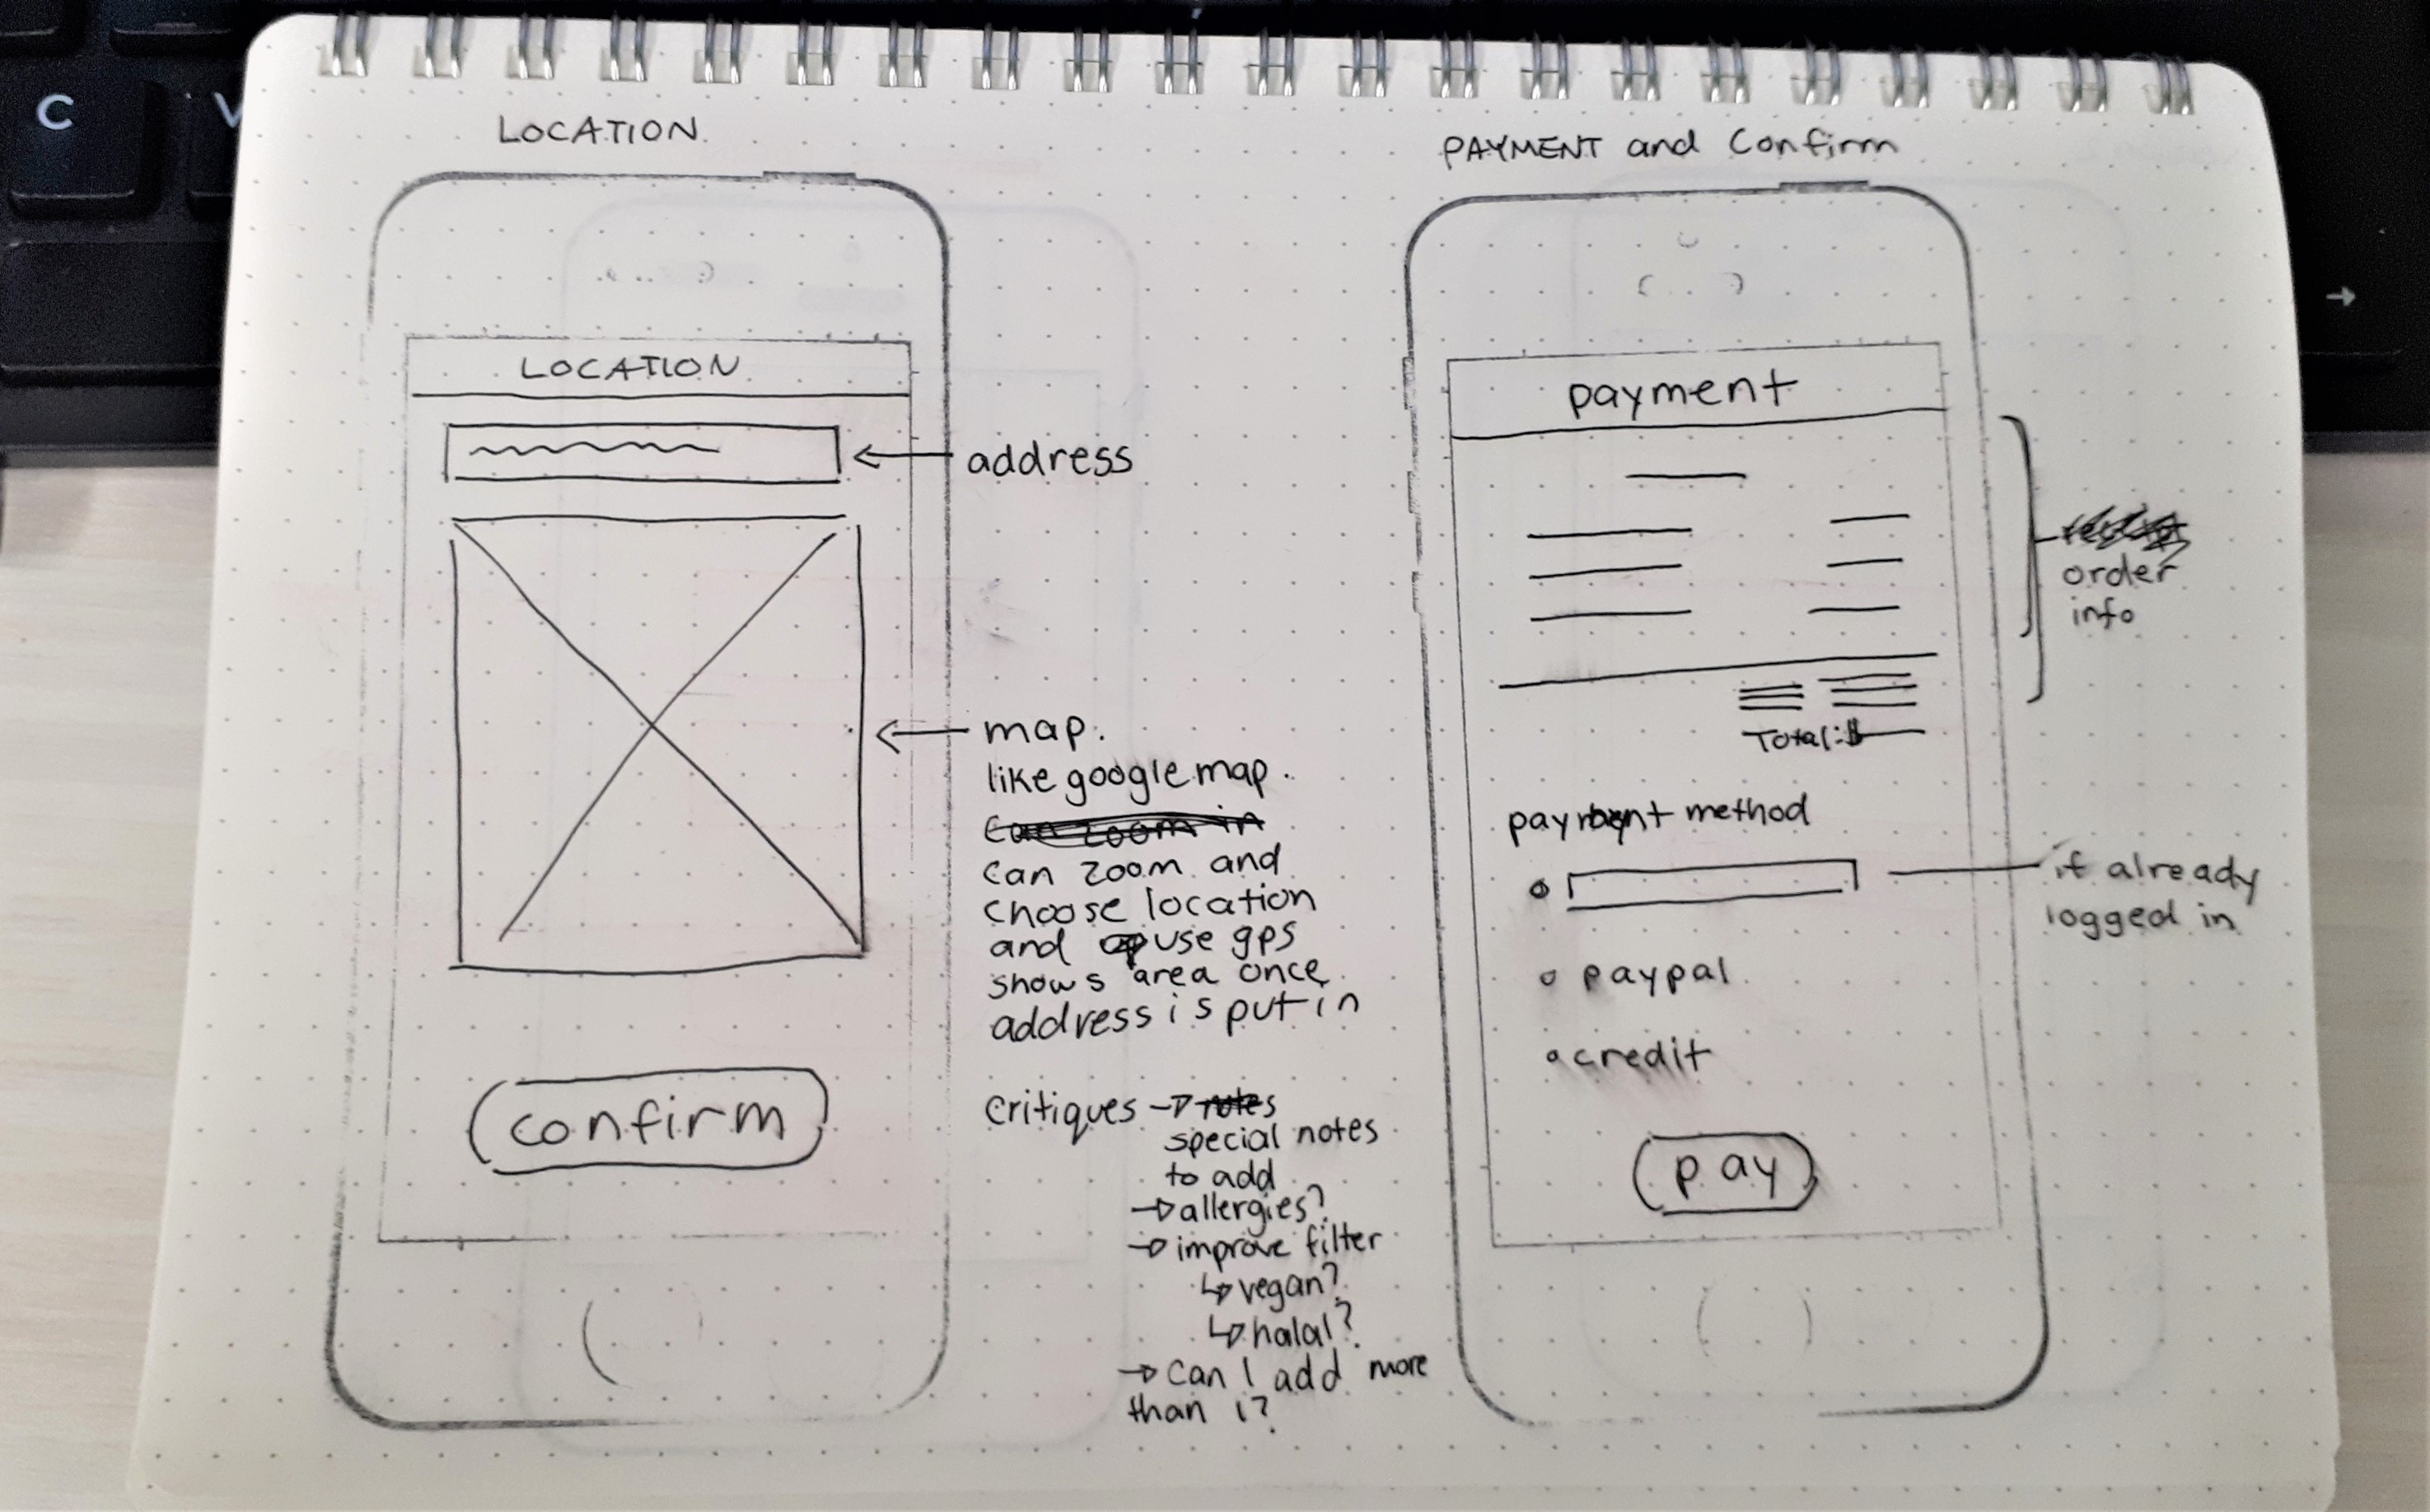 C
V
LOCATION
LOCATION
address
map.
like google map.
can zoom in
can zoom and
choose location
and use gps
shows area once
address is put in
confirm
critiques → notes
special notes
to add
→ allergies?
→ improve filter
↳ vegan?
↳ halal?
→ Can I add more
than 1?
PAYMENT and Confirm
payment
order
info
Total: $
payment method
if already
logged in
paypal
credit
pay